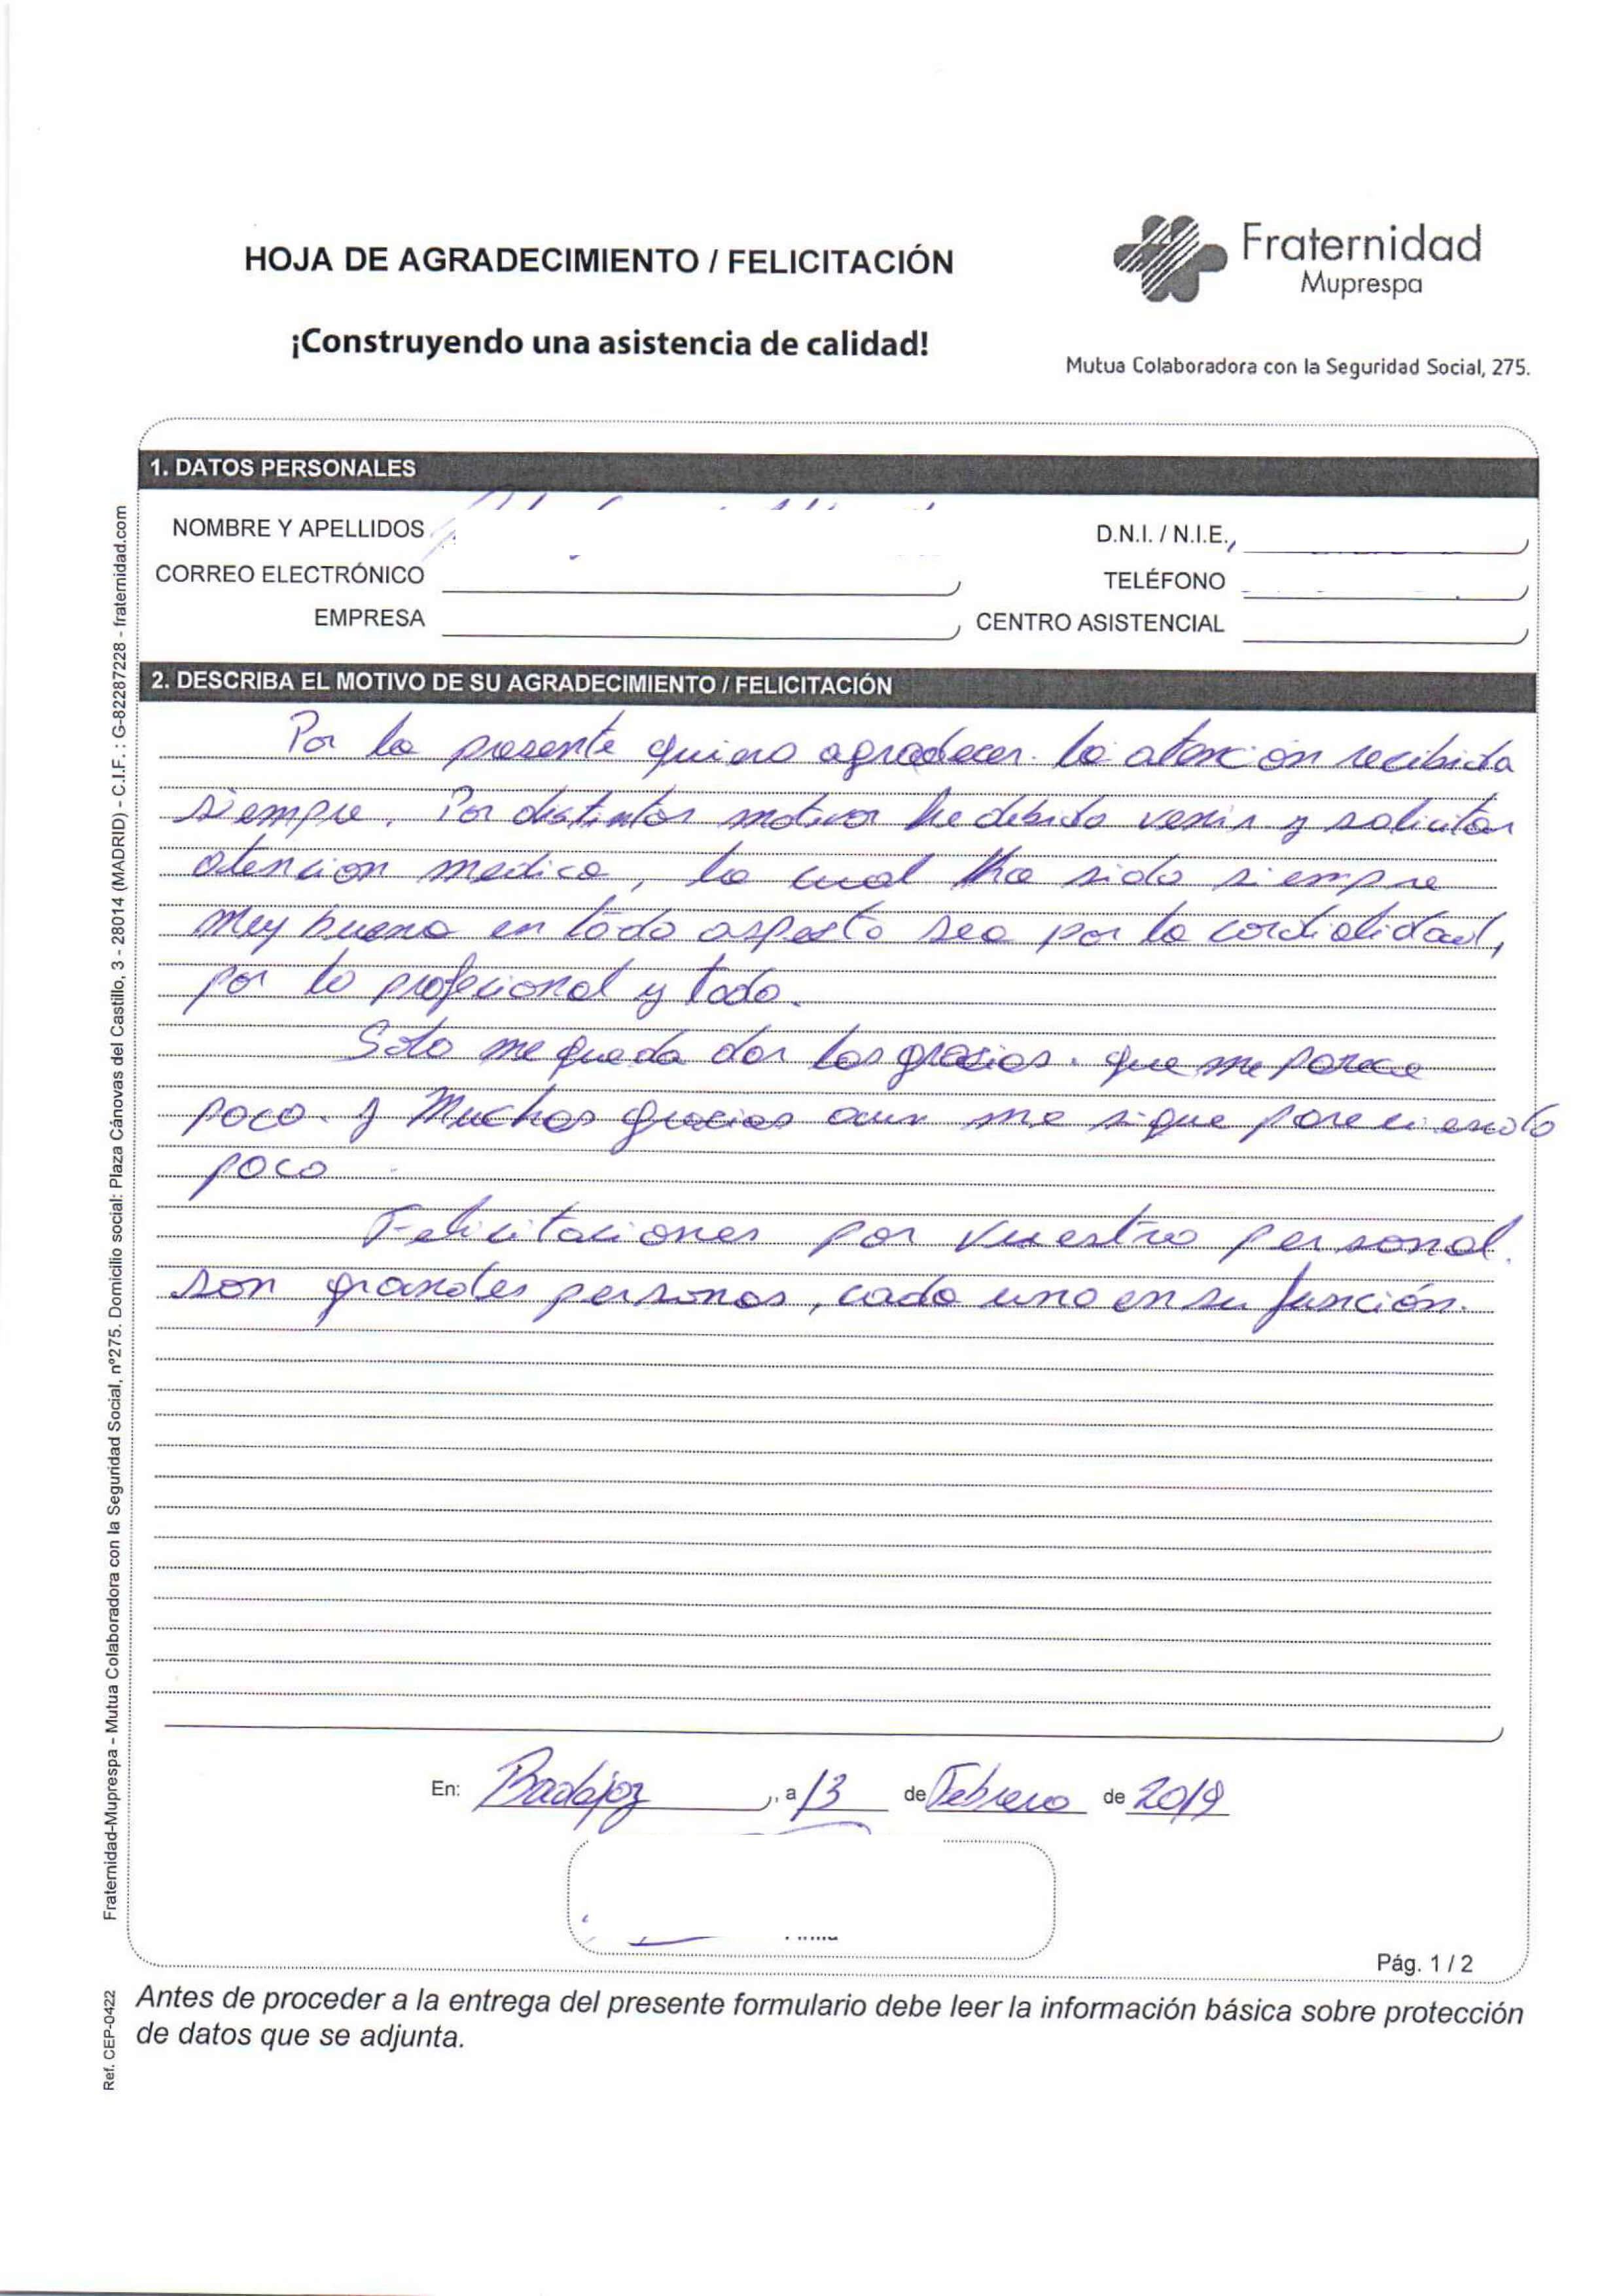 HOJA DE AGRADECIMIENTO / FELICITACIÓN
¡Construyendo una asistencia de calidad!
Fraternidad
Muprespa
Mutua Colaboradora con la Seguridad Social, 275.
1. DATOS PERSONALES
NOMBRE Y APELLIDOS
D.N.I. / N.I.E.
CORREO ELECTRÓNICO
TELÉFONO
EMPRESA
CENTRO ASISTENCIAL
2. DESCRIBA EL MOTIVO DE SU AGRADECIMIENTO / FELICITACIÓN
Por la presente quiero agradecer. la atención recibida
siempre. Por distintos motivos he debido venir y solicitar
atencion medica, la cual ha sido siempre
muy buena en todo aspecto sea por la cordialidad,
por lo profecional y todo.
Solo me queda dar las gracias. que me parece
poco. y Muchas gracias aun me sigue pareciendo
poco
Felicitaciones por vuestro personal.
son grandes personas, cada uno en su función.
En: Badajoz, a 13 de Febrero de 2019
Pág. 1 / 2
Antes de proceder a la entrega del presente formulario debe leer la información básica sobre protección
de datos que se adjunta.
Fraternidad-Muprespa - Mutua Colaboradora con la Seguridad Social, nº275. Domicilio social: Plaza Cánovas del Castillo, 3 - 28014 (MADRID) - C.I.F. : G-82287228 - fraternidad.com
Ref. CEP-0422